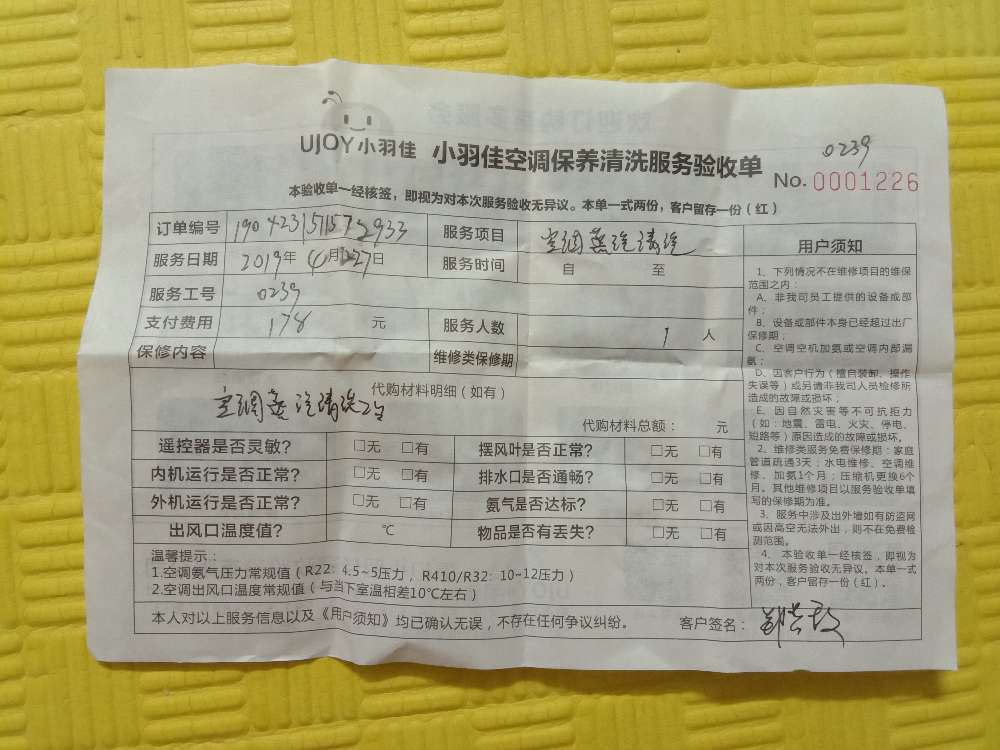 UJOY小羽佳 小羽佳空调保养清洗服务验收单
0239
No. 0001226
本验收单一经核签，即视为对本次服务验收无异议。本单一式两份，客户留存一份（红）
订单编号 190423151572933 服务项目 空调蒸汽清洗
服务日期 2019年 4月27日 服务时间 自 至
服务工号 0239
支付费用 178 元 服务人数 1 人
保修内容 维修类保修期
代购材料明细（如有）
空调蒸汽清洗2台
代购材料总额： 元
遥控器是否灵敏? □无 □有 摆风叶是否正常? □无 □有
内机运行是否正常? □无 □有 排水口是否通畅? □无 □有
外机运行是否正常? □无 □有 氨气是否达标? □无 □有
出风口温度值? ℃ 物品是否有丢失? □无 □有
温馨提示：
1.空调氨气压力常规值（R22: 4.5~5压力，R410/R32: 10~12压力）
2.空调出风口温度常规值（与当下室温相差10℃左右）
本人对以上服务信息以及《用户须知》均已确认无误，不存在任何争议纠纷。 客户签名：
用户须知
1、下列情况不在维修项目的维保
范围之内：
A、非我司员工提供的设备或部
件；
B、设备或部件本身已经超过出厂
保修期；
C、空调空机加氨或空调内部漏
氨；
D、因客户行为（擅自装卸、操作
失误等）或另请非我司人员检修所
造成的故障或损坏；
E、因自然灾害等不可抗拒力
（如：地震、雷电、火灾、停电、
短路等）原因造成的故障或损坏。
2、维修类服务免费保修期：家庭
管道疏通3天；水电维修、空调维
修、加氨1个月；压缩机更换6个
月。其他维修项目以服务验收单填
写的保修期为准。
3、服务中涉及出外墙如有防盗网
或因高空无法外出，则不在免费检
测范围。
4、本验收单一经核签，即视为
对本次服务验收无异议。本单一式
两份，客户留存一份（红）。